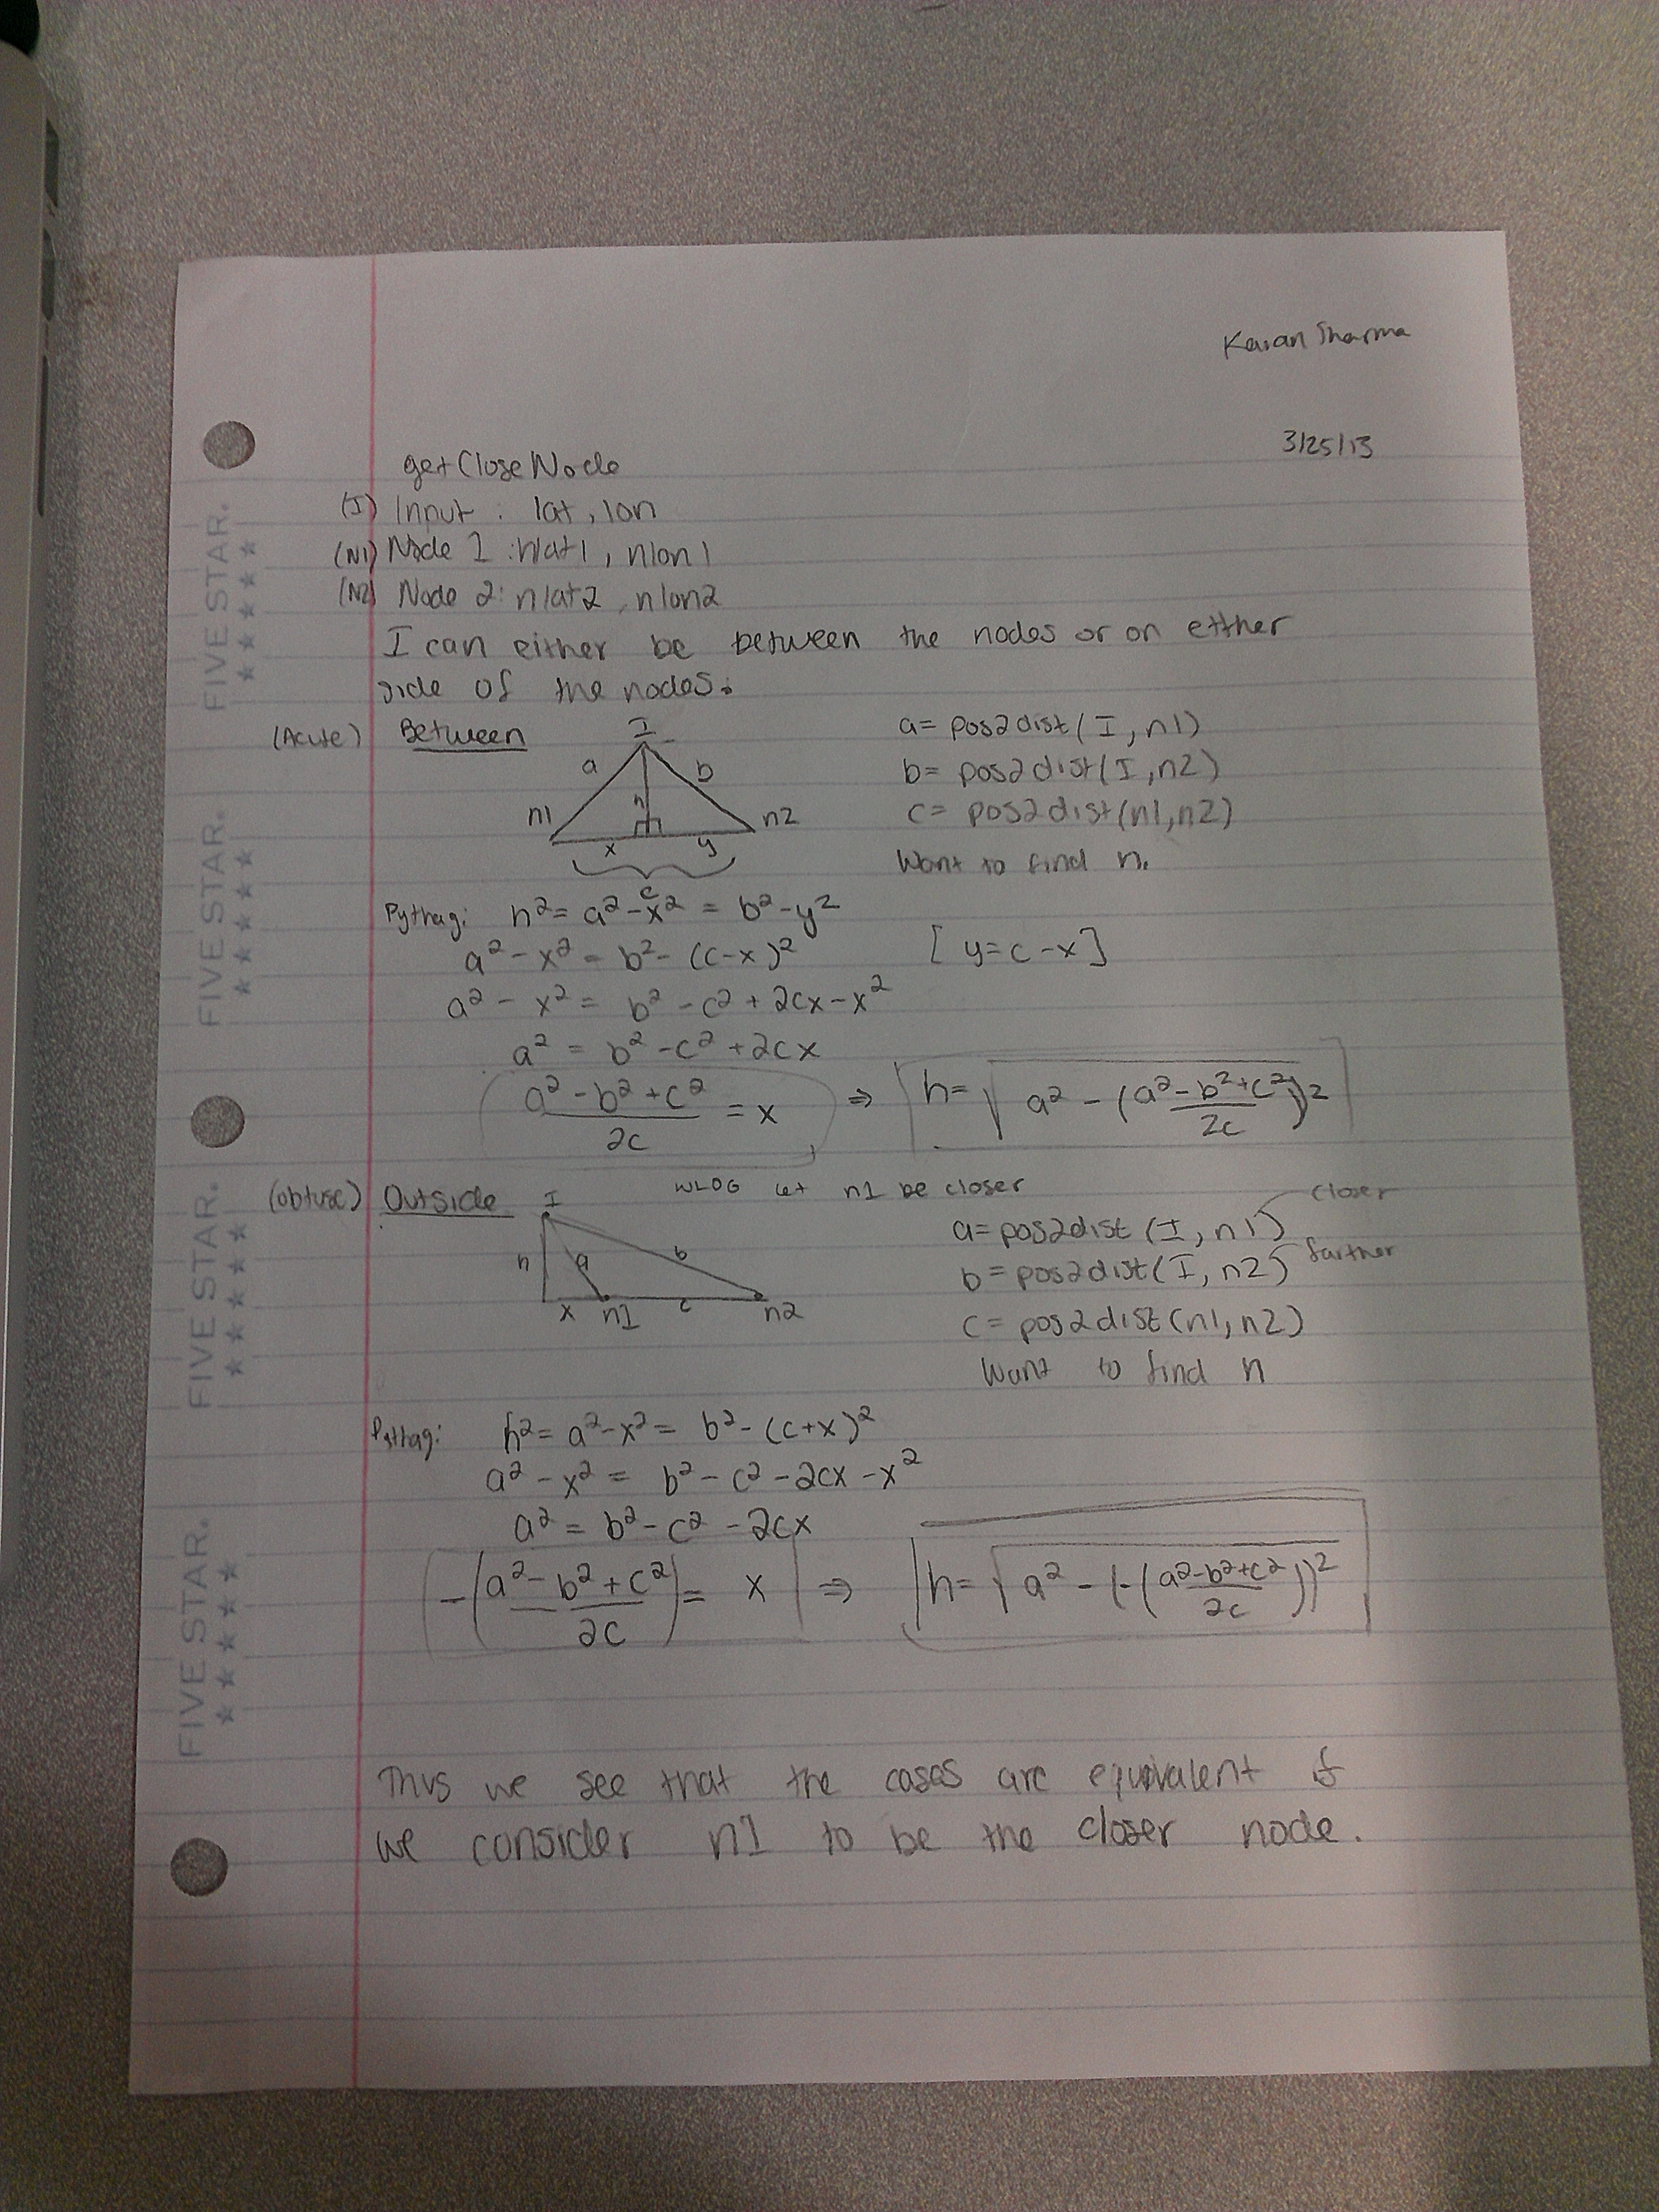 Karan Sharma
3/25/13
getCloseNode
(I) Input : lat, lon
(N1) Node 1 : nlat1, nlon1
(N2) Node 2: nlat2, nlon2
I can either be between the nodes or on either
side of the nodes.
(Acute) Between
I
a b
h
n1 n2
x y
c
a = pos2dist(I, n1)
b = pos2dist(I, n2)
c = pos2dist(n1, n2)
Want to find h.
Pythag: h² = a² - x² = b² - y²
a² - x² = b² - (c-x)² [y = c - x]
a² - x² = b² - c² + 2cx - x²
a² = b² - c² + 2cx
(a² - b² + c²)/2c = x ⇒ h = √(a² - ((a² - b² + c²)/2c)²)
(obtuse) Outside
WLOG let n1 be closer
I
h a b
x n1 c n2
a = pos2dist(I, n1) closer
b = pos2dist(I, n2) farther
c = pos2dist(n1, n2)
Want to find h
Pythag: h² = a² - x² = b² - (c+x)²
a² - x² = b² - c² - 2cx - x²
a² = b² - c² - 2cx
-((a² - b² + c²)/2c) = x ⇒ h = √(a² - (-((a² - b² + c²)/2c))²)
Thus we see that the cases are equivalent if
we consider n1 to be the closer node.
FIVE STAR.
FIVE STAR.
FIVE STAR.
FIVE STAR.